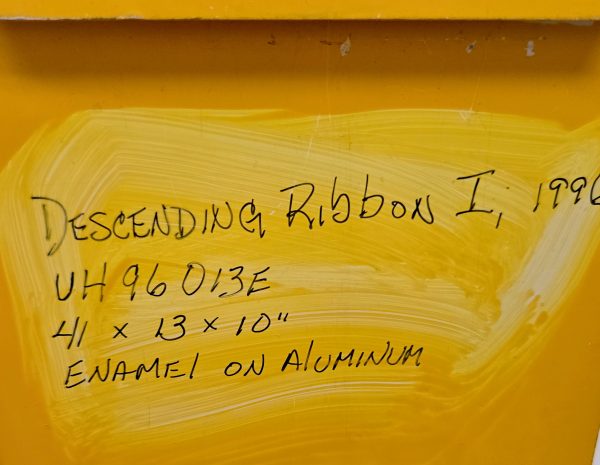 DESCENDING RIbbON I, 1996
UH 96 013E
41 x 13 x 10"
ENAMEl ON AlUMINUM